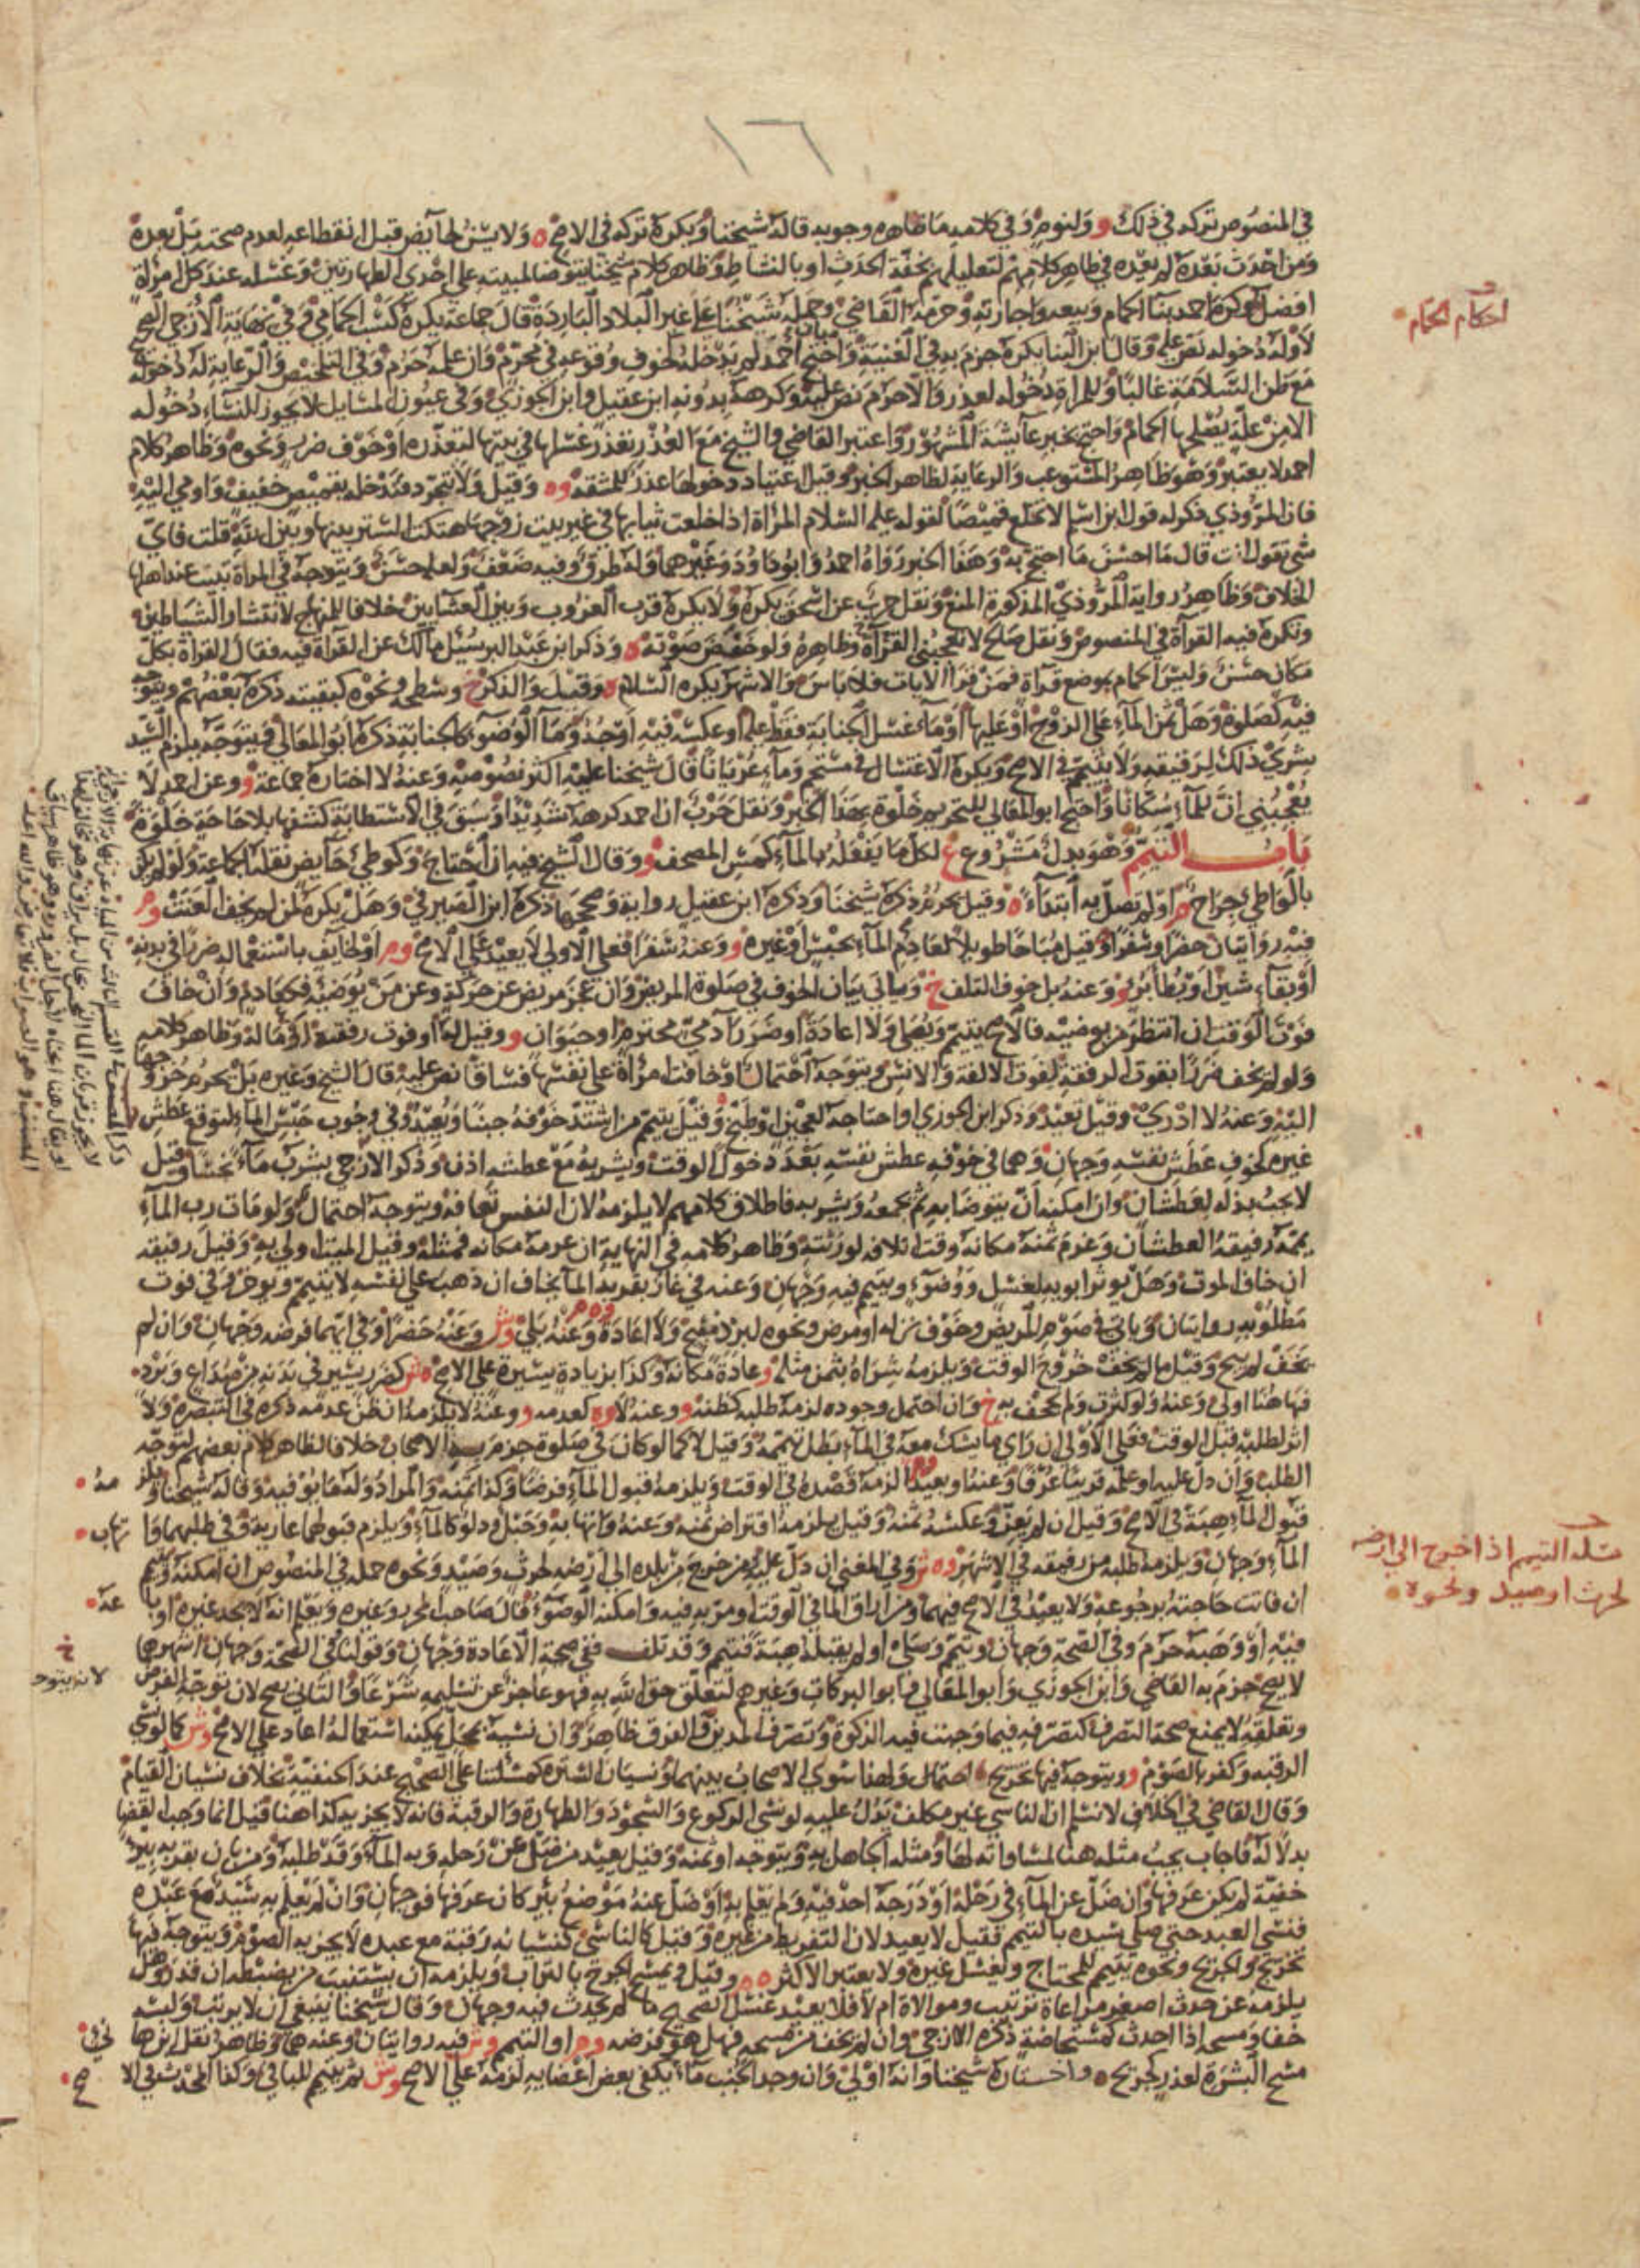 ١٦
في المنصوص تركه في ذلك و ولنوم وفي كلامه ما ظاهره وجوبه قاله شيخنا ويكره تركه في الاصح ه ولا يسن لحايض قبل انقطاعه لعدم صحته بل بعده
ومن احدث بعده لم يعده في ظاهر كلامهم لتعليلهم بخفة الحدث او بالنشاط وظاهر كلام شيخنا يتوضا لمبيته على احدى الطهارتين وغسله عند كل امراة
افضل وكره احمد بنا الحمام وبيعه واجارته وحرمه القاضي وحمله شيخنا على غير البلاد الباردة قال جماعة يكره كسب الحمامي وفي نهاية الازجي الصحيح
لا وله دخوله نص عليه وقال ابن البنا يكره جزم به في الغنية واحتج بان احمد لم يدخله لخوف وقوعه في محرم وان علمه حرم وفي التلخيص والرعاية له دخوله
مع ظن السلامة غالبا وللمراة دخوله لعذر والا حرم نص عليه وكرهه بدونه ابن عقيل وابن الجوزي وفي عيون المسايل لا يجوز للنساء دخوله
الا من علة يصلحها الحمام واحتج بخبر عايشة المشهور واعتبر القاضي والشيخ مع العذر تعذر غسلها في بيتها لتعذره او خوف ضرر ونحوه وظاهر كلام
احمد لا يعتبر وهو ظاهر المستوعب والرعاية لظاهر الخبر وقيل اعتياد دخولها عذر للمشقة وه وقيل ولا تتجرد فتدخله بقميص خفيف واومي اليه
فان المروذي ذكر له قول ابن اسلم لا تخلع قميصا لقوله عليه السلام المراة اذا خلعت ثيابها في غير بيت زوجها هتكت الستر بينها وبين الله قلت فاي
شي تقول انت قال ما احسن ما احتج به وهذا الخبر رواه احمد وابو داود وغيرهما وله طرق وفيه ضعف ولعله حسن ويتوجه في المراة تبيت عند اهلها
الخلاف وظاهر رواية المروذي المذكورة المنع ونقل حرب عن اسحق يكره ولا يكره قرب الغروب وبين العشايين خلافا للمنهاج لانتشار الشياطين
وتكره فيه القرآة في المنصوص ونقل صالح لا تعجبني القرآة وظاهره ولو خفض صوته ه وذكر ابن عبد البر سئيل مالك عن القرآة فيه فقال القراة بكل
مكان حسن وليس الحمام بموضع قرآة فمن قرا الايات فلا باس والاشهر يكره السلام ه وقيل والذكر خ وسطحه ونحوه كبقيته ذكره بعضهم ويتوجه
فيه كصلوة وهل ثمن الماء على الزوج او عليها او ماء غسل الجنابة فقط عليه او عكسه فيه اوجه وما الوضو كالجنابة ذكره ابو المعالي ويتوجه يلزم السيد
شري ذلك لرقيقه ولا يتيمم في الاصح ويكره الاغتسال في مستحم وماء عريانا قال شيخنا عليه اكثر نصوصه وعنه لا اختاره جماعة و وعن احمد لا
يعجبني ان للماء سكانا واحتج ابو المعالي للتحريم خلوة بهذا الخبر ونقل حرب ان احمد كرهه شديدا وسبق في الاستطابة كشفها بلا حاجة خلوة
باب التيمم وهو بدل مشروع ع لكل ما يفعله بالماء كمس المصحف و وقال الشيخ فيه ان احتاج وكوطي حايض نقله الجماعة ولو لم يكن
بالواطي جراح م اولم تصل به ابتداء ه وقيل يحرم ذكره شيخنا وذكره ابن عقيل رواية وصححها ذكره ابن الصيرفي وهل يكره لمن لم يخف العنت وم
فيه روايتان حضرا وسفرا وقيل مباحا طويلا لعادم الماء بحبس او غيره و وعنه سفرا فعلى الاولى لا يعيد على الاصح وم او لخايف باستعماله ضررا في بدنه
او بقاء شين او بطا برء و وعنه بل خوف التلف خ وياتي بيان الخوف في صلوة المريض وان عجز مريض عن حركة وعن من يوضيه فكعادم وان خاف
فوت الوقت ان انتظر من يوضيه فالاصح يتيمم ويصلي ولا اعادة او ضرر آدمي محترم او حيوان و وقيل له او فوت رفقة او ماله وظاهر كلامه
ولو لم يخف ضررا بفوت الرفقة لفوت الالفة والانس ويتوجه احتمال او خافت امراة على نفسها فساقا نص عليه قال الشيخ وغيره بل يحرم خروجها
اليه وعنه لا ادري وقيل تعيد وذكر ابن الجوزي او احتاجه لعجين او طبخ وقيل يتيمم من اشتد خوفه جبنا ويعيد وفي وجوب حبس الماء لتوقع عطش
غيره كخوف عطش نفسه وجهان وهما في خوفه عطش نفسه بعد دخول الوقت ويشربه مع عطشه اذن وذكر الازجي يشرب ماء نجسا وقيل
لا يجب بذله لعطشان وان امكنه ان يتوضا به ثم يجمعه ويشربه فاطلاق كلامهم لا يلزمه لان النفس تعافه ويتوجه احتمال ولو مات رب الماء
يممه رفيقه العطشان وغرم ثمنه مكانه وقت اتلافه لورثته وظاهر كلامه في النهاية ان غرمه مكانه فمثله وقيل الميت اولى به وقيل رفيقه
ان خاف الموت وهل يوثر ابويه لغسل ووضوء ويتيمم فيه وجهان وعنه في غاز بقربه الما يخاف ان ذهب على نفسه لا يتيمم ويوخر وفي فوت
مطلوبه روايتان وياتي في صوم المريض وخوف نزله او مرض ونحوه لبرد مبيح ولا اعادة وعنه بلى وش وعنه حضرا وفي ايهما فرضه وجهان وان لم
يخف لم يبح وقيل ما لم يخف خروج الوقت ويلزمه شراه بثمن مثله وعادة مكانه وكذا بزيادة يسيرة على الاصح ه ش كضرر يسير في بدنه من صداع وبرد
فهاهنا اولى وعنه ولو كثرت ولم تجحف به خ وان احتمل وجوده لزمه طلبه كظنه و وعنه لا وه كعدمه و وعنه لا يلزمه ان ظن عدمه ذكره في التبصرة ولا
اثر لطلبه قبل الوقت فعلى الاولى ان راى ما يشك معه في الماء بطل تيممه وقيل لا كما لو كان في صلوة جزم به الاصحاب خلافا لظاهر كلام بعضهم لتوجه
الطلب وان دل عليه او علمه قريبا عرفا وعنه او بعيدا لزمه قصده في الوقت ويلزمه قبول الماء قرضا وكذا ثمنه والمراد وله ما يوفيه وقاله شيخنا ويلزمه
قبول الماء هبة في الاصح وقيل ان لم يعز وعكسه ثمنه وقيل يلزمه اقتراض ثمنه وعنه واتهابه وحبل ودلو كالماء ويلزم قبولهما عارية وفي طلبهما واتهاب
الماء وجهان ويلزمه طلبه من رفيقه في الاشهر وه ش وفي المغني ان دل عليه ومن خرج من بلده الى ارضه لحرث وصيد ونحوه حمله في المنصوص ان امكنه وتيمم
ان فاتت حاجته برجوعه ولا يعيد في الاصح فيهما ومن اراق الما في الوقت او مر به فيه وامكنه الوضوء قال صاحب المحرر وغيره ويعلم انه لا يجد غيره او باعه
فيه او وهبه حرم وفي الصحة وجهان وتيمم وصلى او لم يقبله هبة فتيمم وقد تلف ففي صحة الاعادة وجهان وقولنا في الصحة وجهان اشهرهما
لا يصح جزم به القاضي وابن الجوزي وابو المعالي وابو البركات وغيرهم لتعلق حق الله به فهو عاجز عن تسليمه شرعا والثاني يصح لان توجه الفرض
وتعلقه لا يمنع صحة التصرف كتصرفه فيما وجبت فيه الزكوة وتصرف المدين والفرق ظاهر وان نسيه بمحل يمكنه استعماله اعاد على الاصح وش كما لو نسي
الرقبة وكفر بالصوم و ويتوجه فيها تخريج احتمال ولهذا سوى الاصحاب بينهما ونسيان السترة كمسئلتنا على الصحيح عند الحنفية بخلاف نسيان القيام
وقال القاضي في الخلاف لا نسلم ان الناسي غير مكلف يدل عليه لو نسي الركوع والسجود والطهارة والرقبة فانه لا يجزيه كذا هنا قيل انما وجب القضا
بدلا له فاجاب يجب مثله هنا لمساواته لها ومثله الجاهل به ويتوجه او ثمنه وقيل يعيد من ضل عن رحله وبه الماء وقد طلبه ومن بان بقربه بير
خفية لم يكن عرفها وان ضل عن الماء في رحله او درجه احد فيه ولم يعلم به او ضل عنه موضع بئر كان عرفها فوجهان وان لم يعلم به سيد مع عبده
فنسي العبد حتى صلى سيده بالتيمم فقيل لا يعيد لان التفريط من غيره وقيل كالناسي كنسيانه رقبة مع عبده لا يجزيه الصوم ويتوجه فيها
تخريج والجريح ونحوه يتيمم للمحتاج ويغسل غيره ولا يعتبر الاكثر ه م وقيل ويمسح الجرح بالتراب ويلزمه ان يستنيب من يضبطه ان قدر وهل
يلزمه عن حدث اصغر مراعاة ترتيب وموالاة ام لا فلا يعيد غسل الصحيح ما لم يحدث فيه وجهان وقال شيخنا ينبغي ان لا يرتب ولبسه
خفا ومسحه اذا احدث كمستحاضة ذكره الازجي وان لم يخف من مسحه فهل هو فرضه وم او التيمم وش فيه روايتان وعنه هما وظاهر نقل ابن هاني
مسح البشرة لعذر كجريح ه واختاره شيخنا وانه اولى وان وجد الجنب ماء يكفي بعض اعضايه لزمه على الاصح وش ثم يتيمم للباقي وكذا المحدث في الاصح
احكام الحمام
مسلة التيمم اذا خرج الى ارضه
لحرث او صيد ونحوه
لانه يتوجه